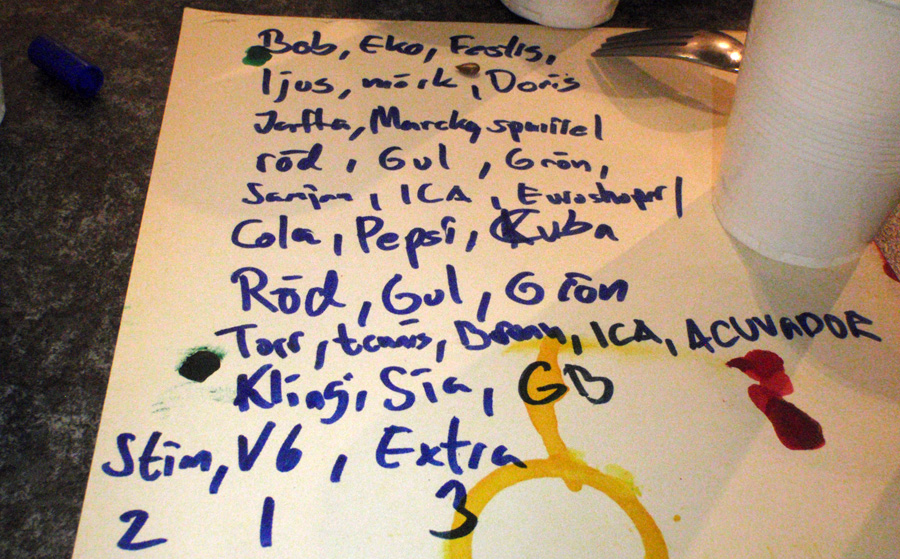 Bob, Eko, Festis,
ljus, mörk, Doris
Jaffa, Marcky, spurfel
röd, Gul, Grön,
ICA, Euroshoper
Cola, Pepsi, Kuba
Röd, Gul, Grön
Torr, ICA, ACUVADOR
Kling, Sia, GB
Stim, V6, Extra
2 1 3